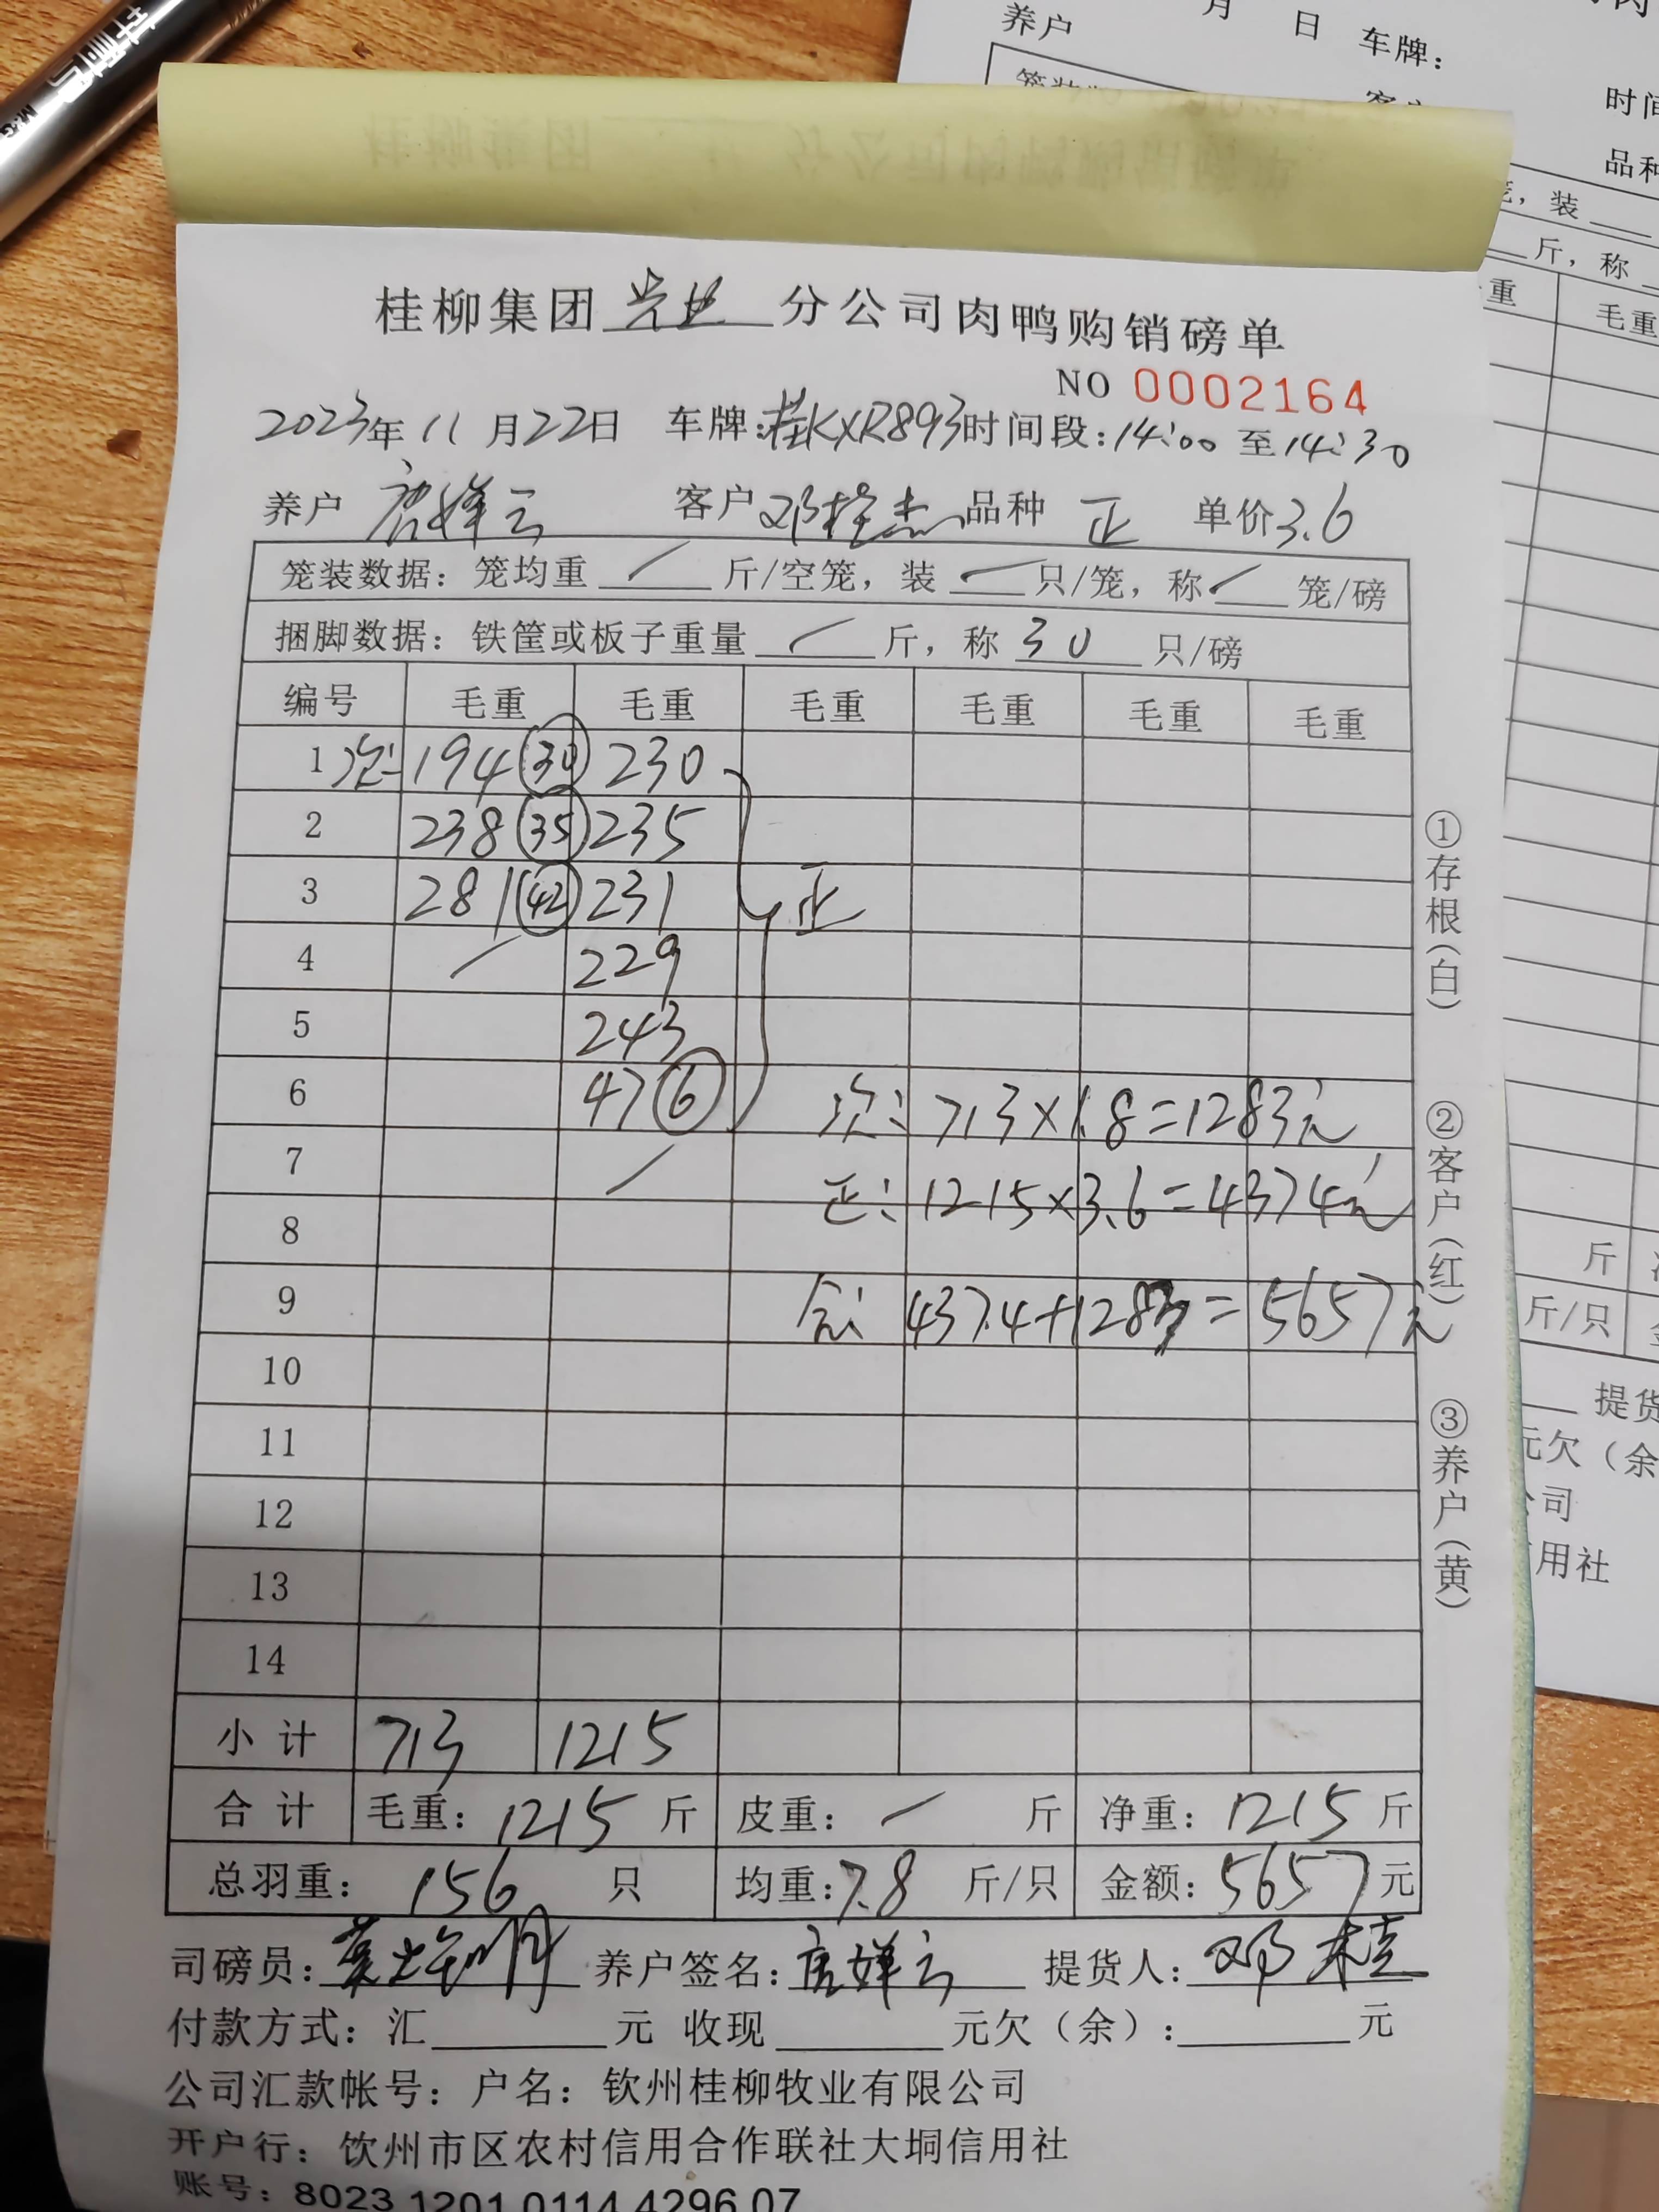 桂柳集团 分公司肉鸭购销磅单
NO 0002164
2023年11月22日 车牌:桂KXR893 时间段:14:00至14:30
养户 唐祥云 客户 邓桂杰 品种 正 单价3.6
笼装数据：笼均重 / 斤/空笼，装 / 只/笼，称 / 笼/磅
捆脚数据：铁筐或板子重量 / 斤，称 30 只/磅
编号 毛重 毛重 毛重 毛重 毛重 毛重
1 次: 194 30 230
2 238 35 235
3 281 42 231 正
4 / 229
5 243
6 47 6 次: 713×1.8=1283元
7 / 正: 1215×3.6=4374元
8
9 合: 4374+1283=5657元
10
11
12
13
14
小计 713 1215
合计 毛重：1215斤 皮重：/ 斤 净重：1215斤
总羽重：156 只 均重：7.8 斤/只 金额：5657元
司磅员： 养户签名：唐祥云 提货人：邓桂
付款方式：汇 元 收现 元欠（余）： 元
公司汇款帐号：户名：钦州桂柳牧业有限公司
开户行：饮州市区农村信用合作联社大垌信用社
账号：8023 1201 0114 4296 07
①存根（白）
②客户（红）
③养户（黄）
养户 月 日 车牌：
时间
品种
装
斤，称
重 毛重
斤
斤/只
提货
元欠（余
公司
用社